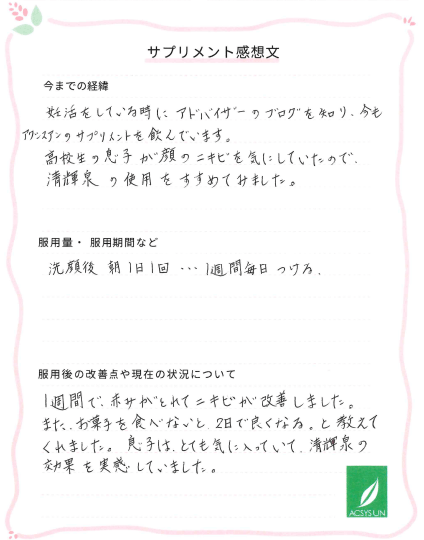 サプリメント感想文
今までの経緯
妊活をしている時に アドバイザーのブログを知り、今も
アクシスアンのサプリメントを飲んでいます。
高校生の息子が顔のニキビを気にしていたので、
清輝泉 の使用をすすめてみました。
服用量・ 服用期間など
洗顔後 朝1日1回 … 1週間毎日 つける.
服用後の改善点や現在の状況について
1週間で、赤サがとれて ニキビが改善しました。
また、お菓子を食べないと、2日で良くなる。と教えて
くれました。 息子は、とても気に入っていて、清輝泉の
効果を実感していました。
ACSYSUN